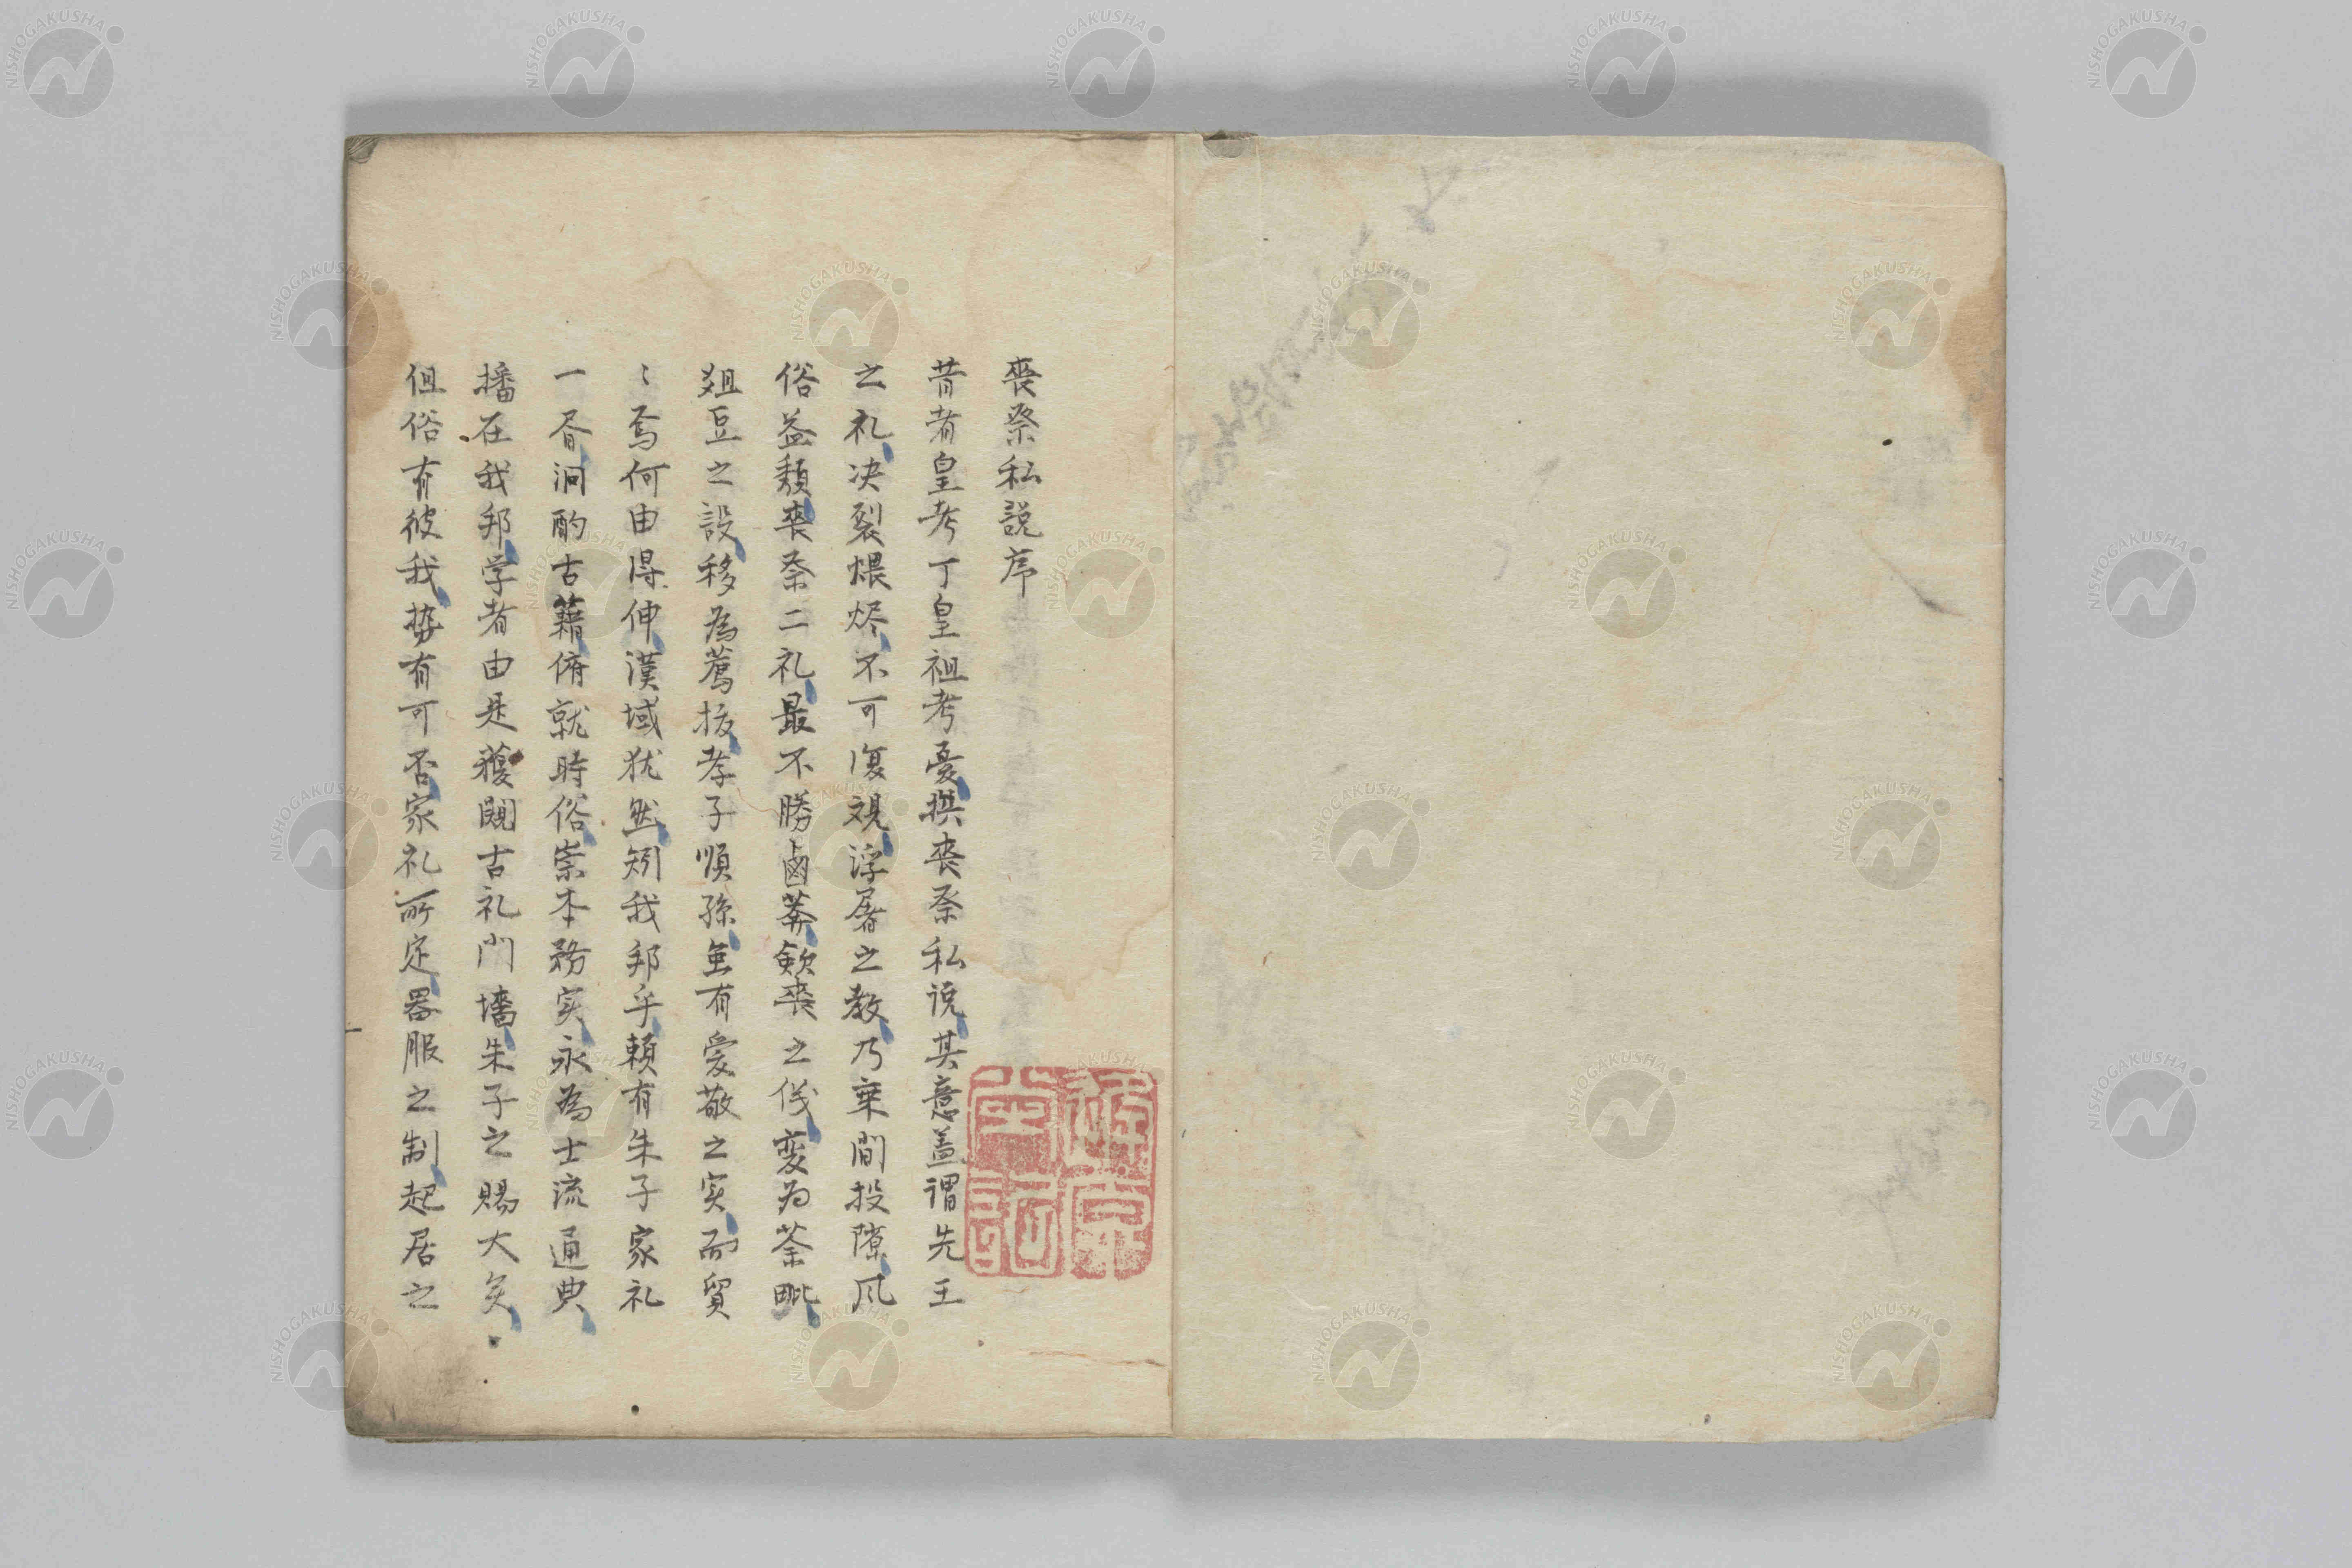 喪祭私説序
昔者皇考丁皇祖考憂撰喪祭私説其意盖謂先王
之礼决裂煨烬不可復覩浮屠之教乃乗間投隙风
俗益頽喪祭二礼最不勝鹵莽歛喪之伐変为荼毗
爼豆之設移為薦拔孝子順孫虽有愛敬之实而貿
〻焉何由得伸漢域犹然矧我邦乎頼有朱子家礼
一斉洄酌古籍俯就時俗崇本務实永為士流通典
播在我邦学者由是獲闚古礼門墻朱子之賜大矣
但俗有彼我势有可否家礼所定器服之制起居之
NISHOGAKUSHA